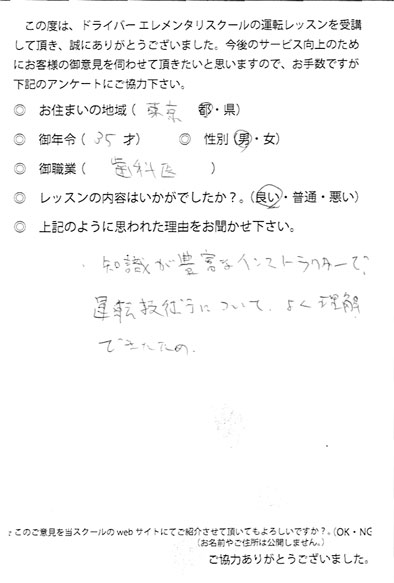 この度は、ドライバー エレメンタリスクールの運転レッスンを受講
して頂き、誠にありがとうございました。今後のサービス向上のため
にお客様の御意見を伺わせて頂きたいと思いますので、お手数ですが
下記のアンケートにご協力下さい。
◎ お住まいの地域（ 東京 都・県）
◎ 御年令（ 35 才） ◎ 性別（男・女）
◎ 御職業（ 歯科医 ）
◎ レッスンの内容はいかがでしたか？。（良い・普通・悪い）
◎ 上記のように思われた理由をお聞かせ下さい。
・知識が豊富なインストラクターで、
運転技術について、よく理解
できたため。
このご意見を当スクールの web サイトにてご紹介させて頂いてもよろしいですか？。（OK・NG
（お名前やご住所は公開しません。）
ご協力ありがとうございました。